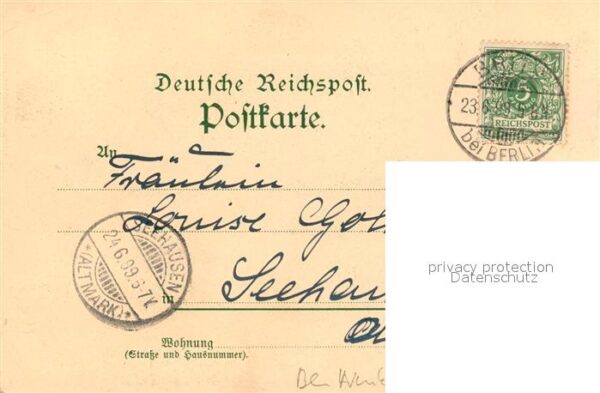 Deutsche Reichspost.
Postkarte.
BRITZ
23.6.99
bei BERLIN
5
REICHSPOST
An
Fräulein
Louise
in
Seehau
SEEHAUSEN
24.6.99.6-7V.
*(ALTMARK)*
Wohnung
(Straße und Hausnummer).
privacy protection
Datenschutz